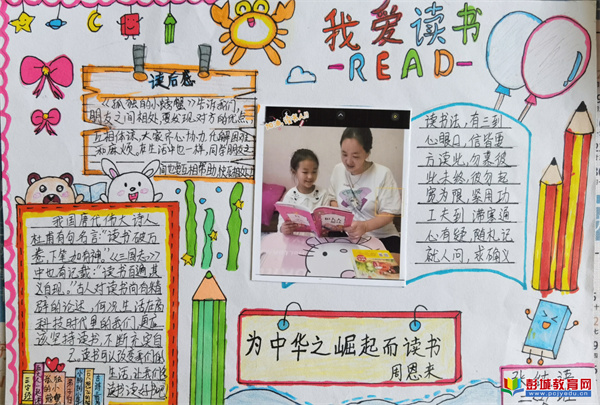 我爱读书
-READ-
读后感
《孤独的小螃蟹》告诉我们,
朋友之间相处,要发现对方的优点,
互相体谅,大家齐心协力,化解困难
和麻烦。在生活中也一样,同学朋友之
间也要互相帮助
读书法,有三到
心眼口,信皆要
方读此,勿慕彼
此未终,彼勿起
宽为限,紧用功
工夫到,滞塞通
心有疑,随札记
就人问,求确义
我国唐代伟大诗人
杜甫有句名言:“读书破万
卷,下笔如有神”,《三国志》
中也有记载:“读书百遍,其
义自现,”古人对读书尚有精
辟的论述,何况生活在高
科技时代里的我们,更应
该坚持读书,不断充实自
己。读书可以改变我们的
生活,让我们
读书读好书吧!
为中华之崛起而读书
周恩来
彭城教育网
www.pcjyedu.cn